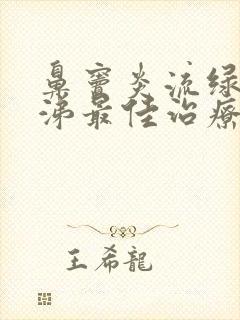 鼻窦炎流绿
涕最佳治療
王希龍